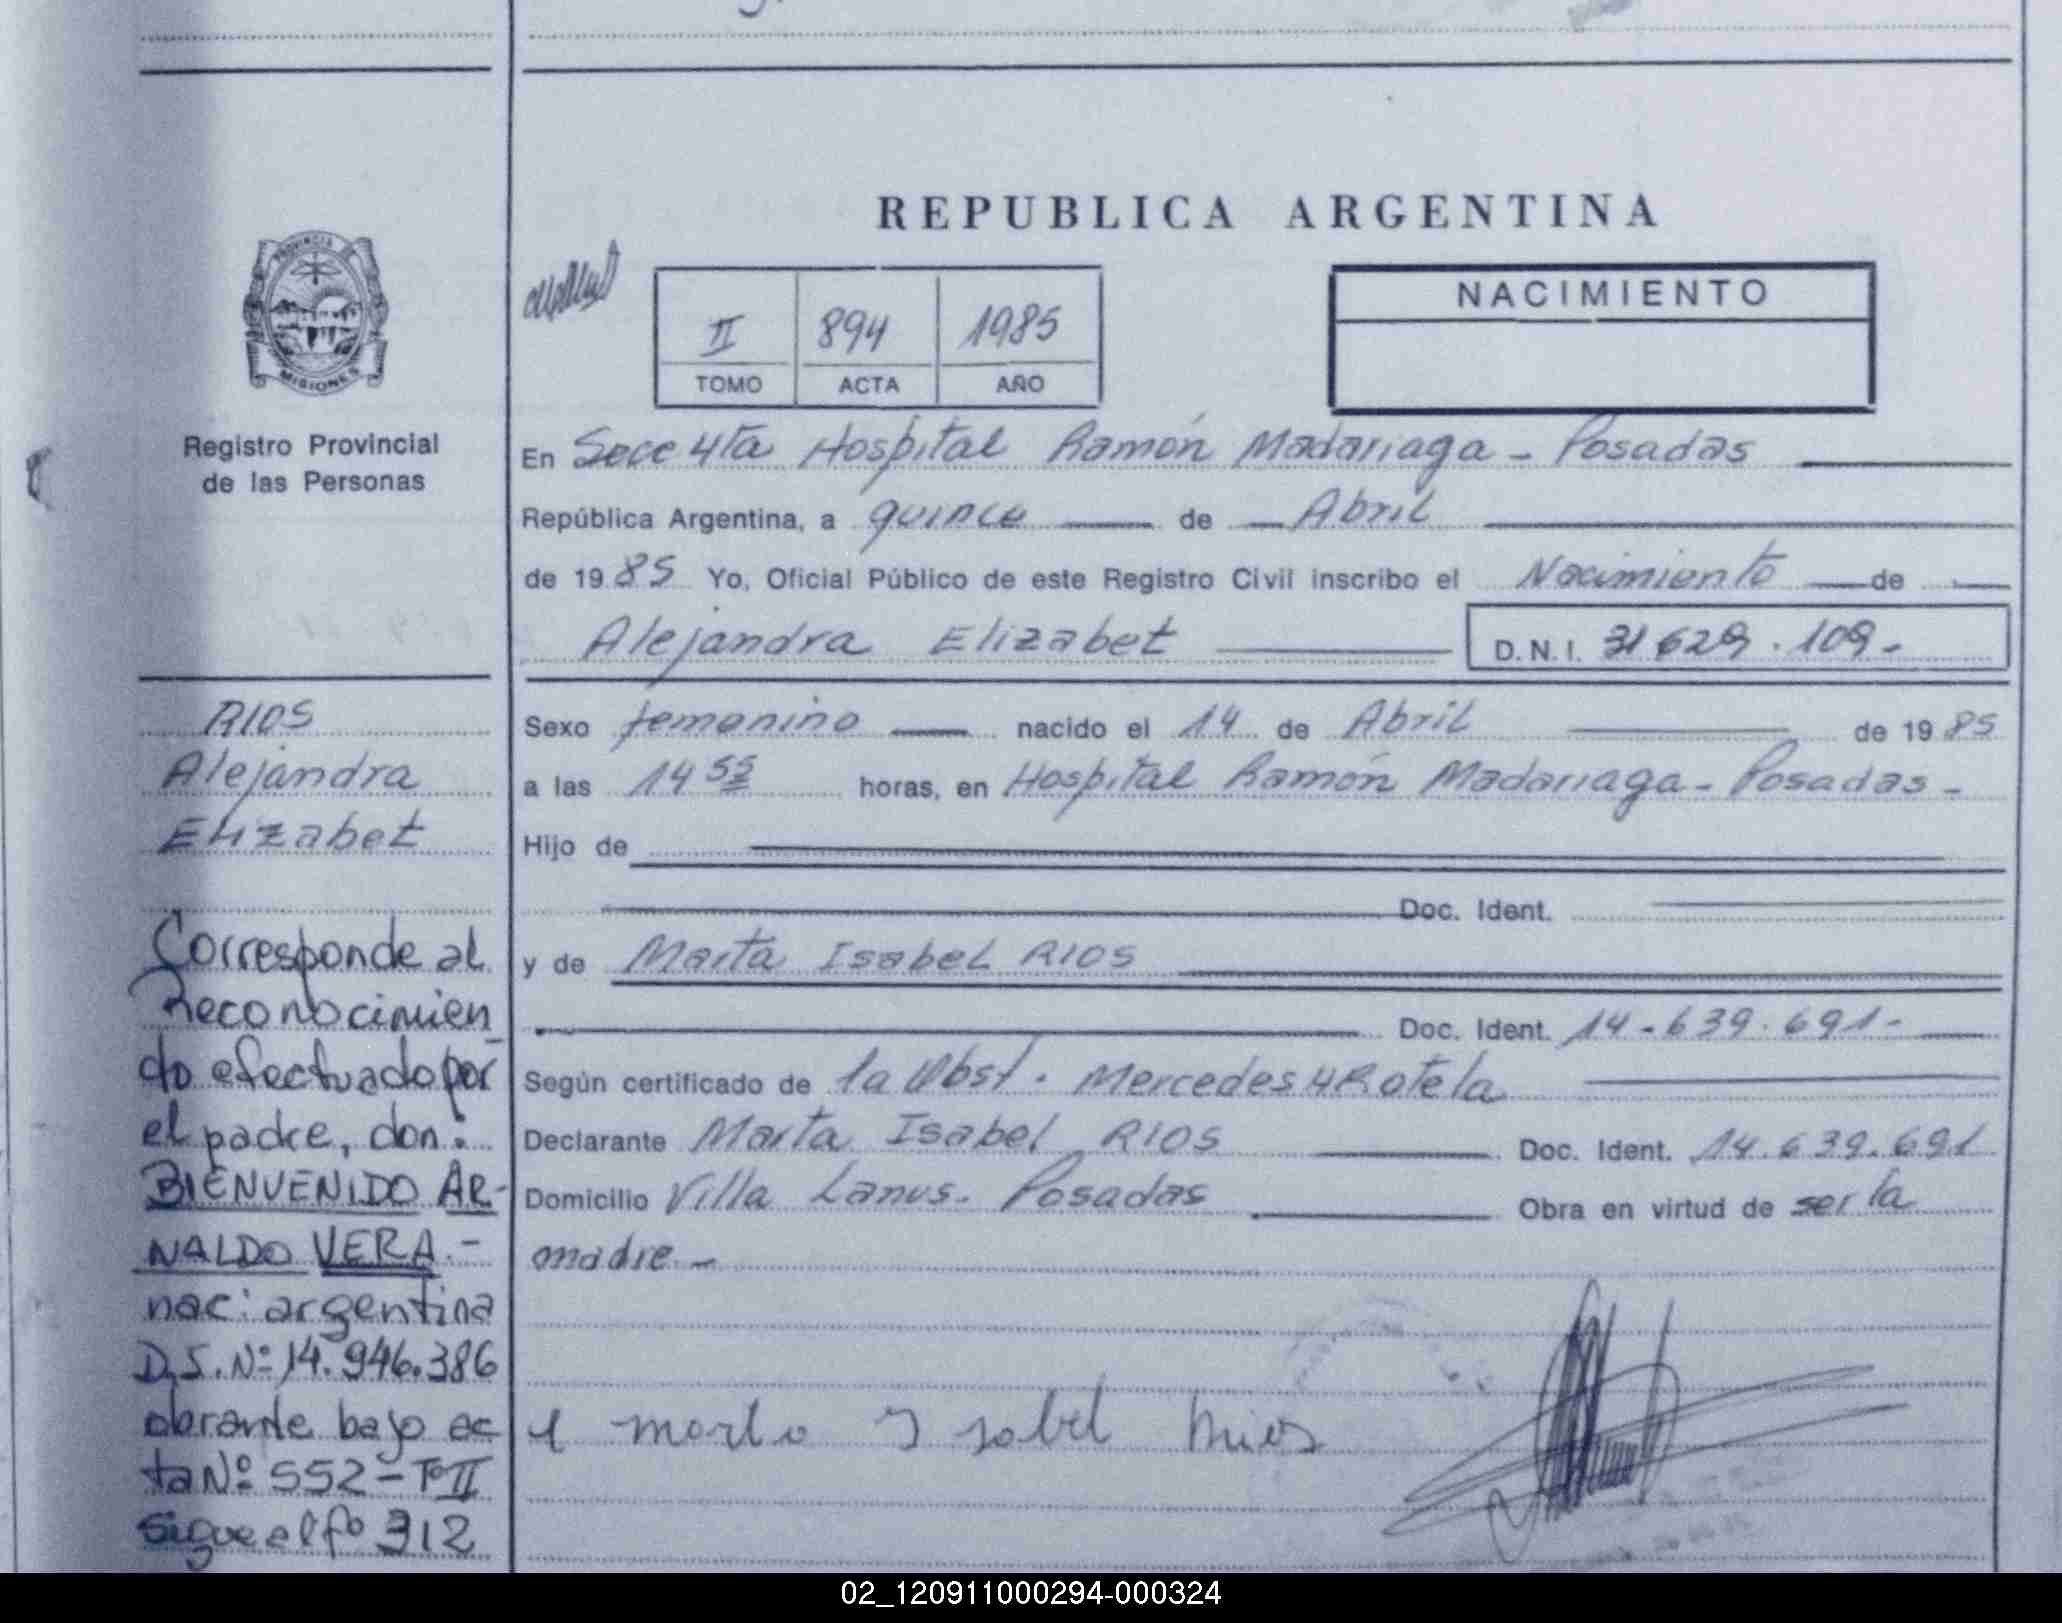 REPUBLICA ARGENTINA
PROVINCIA
MISIONES
Registro Provincial
de las Personas
II 894 1985
TOMO ACTA AÑO
NACIMIENTO
En Secc 4ta Hospital Ramón Madariaga - Posadas
República Argentina, a quince de Abril
de 19 85 Yo, Oficial Público de este Registro Civil inscribo el Nacimiento de
Alejandra Elizabet
D.N.I. 31 629.109-
Sexo femenino nacido el 14 de Abril de 19 85
a las 14 55 horas, en Hospital Ramón Madariaga - Posadas -
Hijo de
Doc. Ident.
y de Marta Isabel RIOS
Doc. Ident. 14-639.691-
Según certificado de la Obst. Mercedes Rotela
Declarante Marta Isabel RIOS Doc. Ident. 14.639.691
Domicilio Villa Lanus. Posadas Obra en virtud de ser la
madre.-
RIOS
Alejandra
Elizabet
Corresponde al
Reconocimien
to efectuado por
el padre, don:
BIENVENIDO AR-
NALDO VERA.-
nac: argentina
D.J. Nº 14.946.386
obrante bajo ac
ta Nº 552 - Tº II
sigue el fº 312
02_120911000294-000324